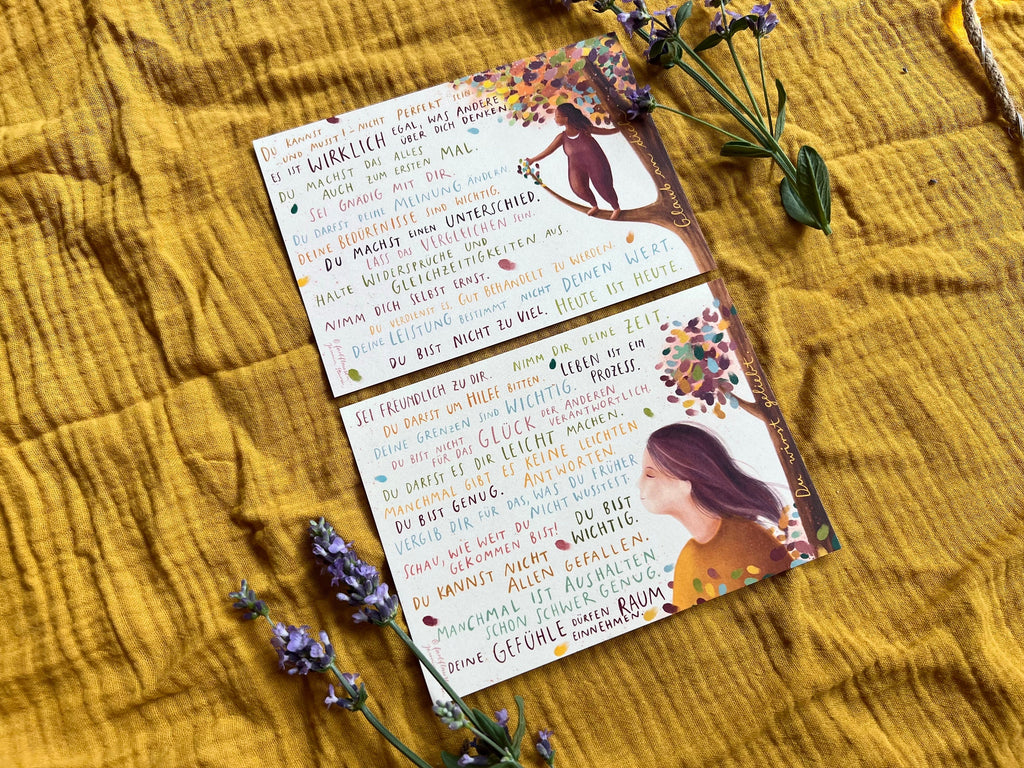 DU KANNST – UND MUSST! – NICHT PERFEKT SEIN.
ES IST WIRKLICH EGAL, WAS ANDERE ÜBER DICH DENKEN.
DU MACHST DAS ALLES AUCH ZUM ERSTEN MAL.
SEI GNÄDIG MIT DIR.
DU DARFST DEINE MEINUNG ÄNDERN.
DEINE BEDÜRFNISSE SIND WICHTIG.
DU MACHST EINEN UNTERSCHIED.
LASS DAS VERGLEICHEN SEIN.
HALTE WIDERSPRÜCHE UND GLEICHZEITIGKEITEN AUS.
NIMM DICH SELBST ERNST.
DU VERDIENST ES, GUT BEHANDELT ZU WERDEN.
DEINE LEISTUNG BESTIMMT NICHT DEINEN WERT.
DU BIST NICHT ZU VIEL. HEUTE IST HEUTE.
Glaub an dich
SEI FREUNDLICH ZU DIR. NIMM DIR DEINE ZEIT.
DU DARFST UM HILFE BITTEN. LEBEN IST EIN PROZESS.
DEINE GRENZEN SIND WICHTIG.
DU BIST NICHT FÜR DAS GLÜCK DER ANDEREN VERANTWORTLICH.
DU DARFST ES DIR LEICHT MACHEN.
MANCHMAL GIBT ES KEINE LEICHTEN ANTWORTEN.
DU BIST GENUG.
VERGIB DIR FÜR DAS, WAS DU FRÜHER NICHT WUSSTEST.
SCHAU, WIE WEIT DU GEKOMMEN BIST! DU BIST WICHTIG.
DU KANNST NICHT ALLEN GEFALLEN.
MANCHMAL IST AUSHALTEN SCHON SCHWER GENUG.
DEINE GEFÜHLE DÜRFEN RAUM EINNEHMEN.
Du wirst geliebt